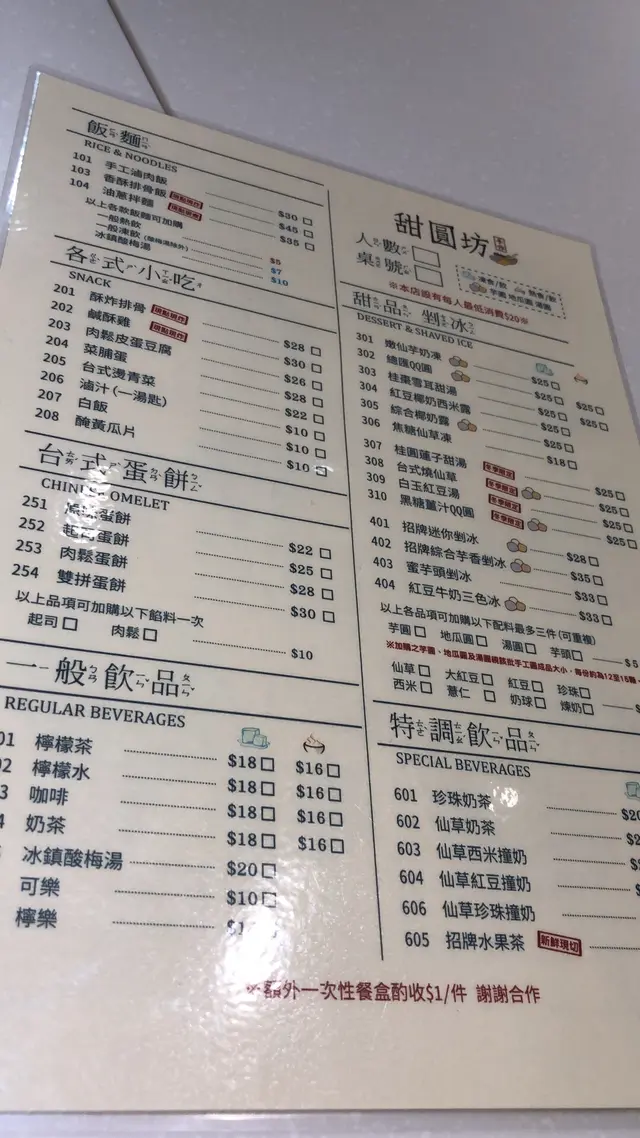 飯麵
RICE & NOODLES
101 手工滷肉飯 $30
103 香酥排骨飯 $45
104 油蔥拌麵 $35
以上各款飯麵可加購
一般熱飲 $5
一般凍飲 $7
冰鎮酸梅湯 $10
各式小吃
SNACK
201 酥炸排骨 $28
202 鹹酥雞 $30
203 肉鬆皮蛋豆腐 $26
204 菜脯蛋 $28
205 台式燙青菜 $22
206 滷汁(一湯匙) $10
207 白飯 $10
208 醃黃瓜片 $10
台式蛋餅
CHINESE OMELET
251 蛋餅 $22
252 蛋餅 $25
253 肉鬆蛋餅 $28
254 雙拼蛋餅 $30
以上品項可加購以下餡料一次
起司 肉鬆 $10
一般飲品
REGULAR BEVERAGES
01 檸檬茶 $18 $16
02 檸檬水 $18 $16
3 咖啡 $18 $16
4 奶茶 $18 $16
冰鎮酸梅湯 $20
可樂 $10
檸樂
甜圓坊
人數
桌號
※本店設有每人最低消費$20※
甜品 剉冰
DESSERT & SHAVED ICE
301 嫩仙芋奶凍 $25
302 總匯QQ圓 $25 $25
303 桂棗雪耳甜湯 $25 $25
304 紅豆椰奶西米露 $25
305 綜合椰奶露 $25
306 焦糖仙草凍 $18
307 桂圓蓮子甜湯 冬季限定 $25
308 台式燒仙草 冬季限定 $25
309 白玉紅豆湯 冬季限定 $25
310 黑糖薑汁QQ圓 冬季限定 $25
401 招牌迷你剉冰 $28
402 招牌綜合芋香剉冰 $35
403 蜜芋頭剉冰 $33
404 紅豆牛奶三色冰 $33
以上各品項可加購以下配料最多三件(可重複)
芋圓 地瓜圓 湯圓 芋頭 $5
仙草 大紅豆 紅豆 珍珠
西米 薏仁 奶球 煉奶
特調飲品
SPECIAL BEVERAGES
601 珍珠奶茶
602 仙草奶茶
603 仙草西米撞奶
604 仙草紅豆撞奶
606 仙草珍珠撞奶
605 招牌水果茶 新鮮現切
※額外一次性餐盒酌收$1/件 謝謝合作